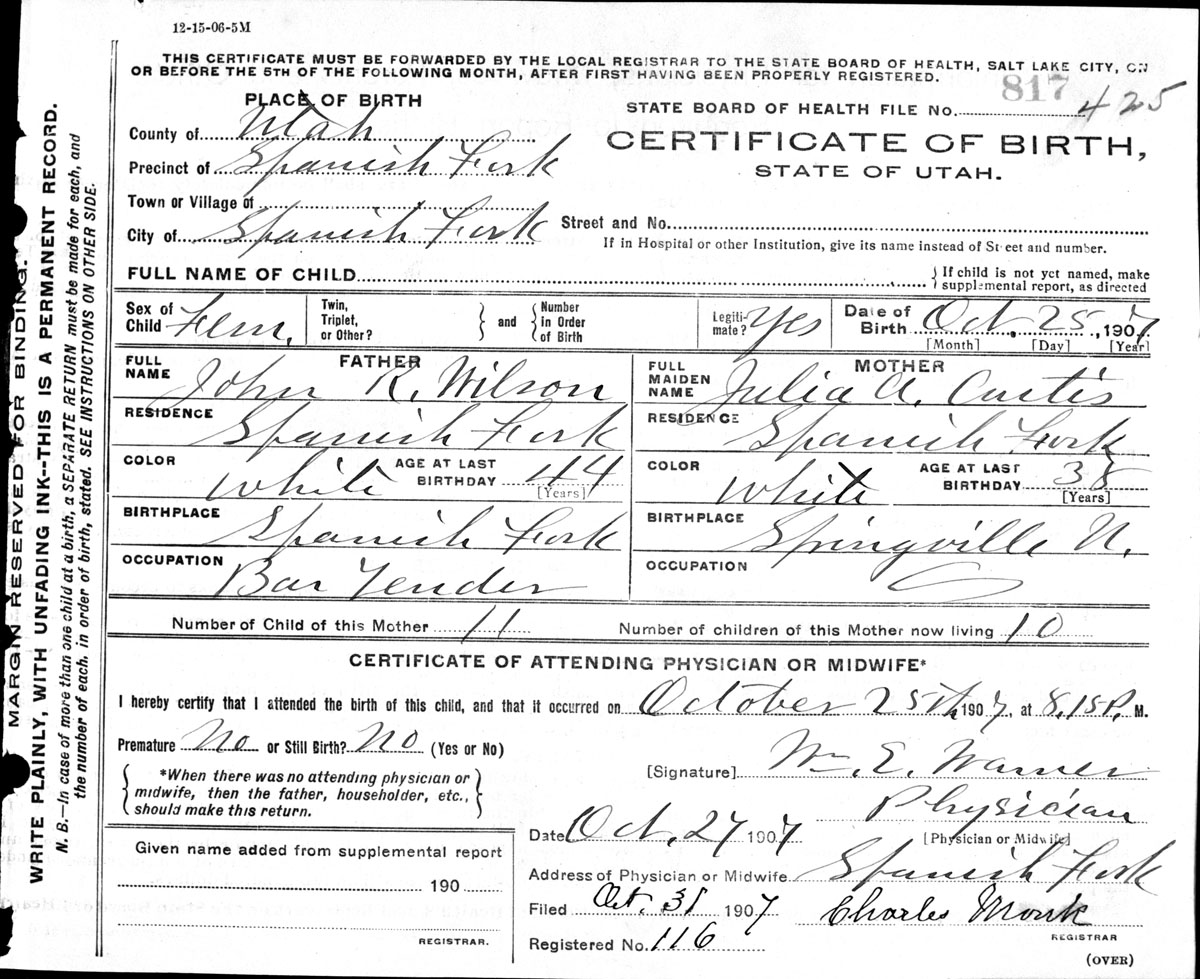 12-15-06-5M
THIS CERTIFICATE MUST BE FORWARDED BY THE LOCAL REGISTRAR TO THE STATE BOARD OF HEALTH, SALT LAKE CITY, ON
OR BEFORE THE 5TH OF THE FOLLOWING MONTH, AFTER FIRST HAVING BEEN PROPERLY REGISTERED.
817
PLACE OF BIRTH
STATE BOARD OF HEALTH FILE No. 425
County of Utah
CERTIFICATE OF BIRTH,
STATE OF UTAH.
Precinct of Spanish Fork
Town or Village of
City of Spanish Fork
Street and No.
If in Hospital or other Institution, give its name instead of Street and number.
FULL NAME OF CHILD
If child is not yet named, make
supplemental report, as directed
Sex of Child Fem.
Twin, Triplet, or Other?
and
Number in Order of Birth
Legiti-mate? Yes
Date of Birth Oct. 25, 1907
[Month] [Day] [Year]
FATHER
FULL NAME John K. Wilson
RESIDENCE Spanish Fork
COLOR White
AGE AT LAST BIRTHDAY 44
[Years]
BIRTHPLACE Spanish Fork
OCCUPATION Bar Tender
MOTHER
FULL MAIDEN NAME Julia A. Curtis
RESIDENCE Spanish Fork
COLOR White
AGE AT LAST BIRTHDAY
[Years]
BIRTHPLACE Springville U.
OCCUPATION
Number of Child of this Mother 11
Number of children of this Mother now living 10
CERTIFICATE OF ATTENDING PHYSICIAN OR MIDWIFE*
I hereby certify that I attended the birth of this child, and that it occurred on October 25th, 1907, at 8.15 P. M.
Premature No or Still Birth? No (Yes or No)
*When there was no attending physician or
midwife, then the father, householder, etc.,
should make this return.
[Signature] Wm. E. Warner
Physician
[Physician or Midwife]
Date Oct. 27 1907
Address of Physician or Midwife Spanish Fork
Filed Oct. 31 1907
Charles Monk
REGISTRAR
Registered No. 116
(OVER)
Given name added from supplemental report
190
REGISTRAR.
MARGIN RESERVED FOR BINDING.
WRITE PLAINLY, WITH UNFADING INK--THIS IS A PERMANENT RECORD.
N. B.—In case of more than one child at a birth, a SEPARATE RETURN must be made for each, and
the number of each, in order of birth, stated. SEE INSTRUCTIONS ON OTHER SIDE.